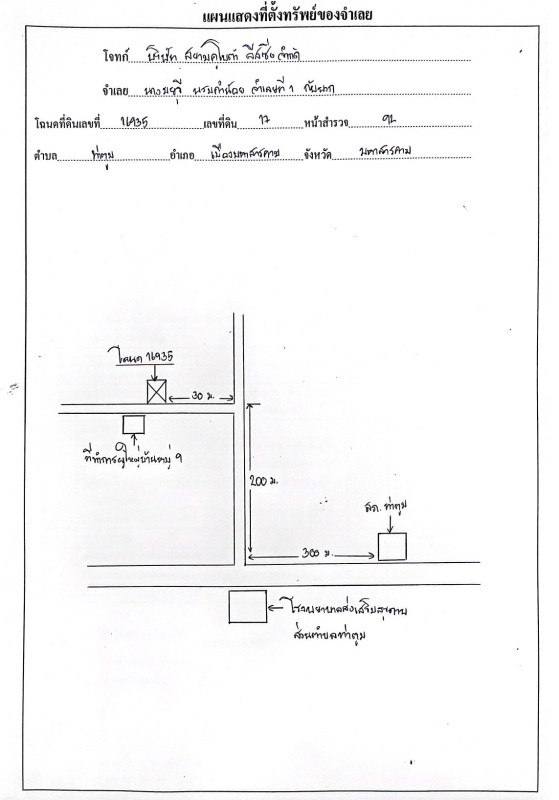 แผนแสดงที่ตั้งทรัพย์ของจำเลย
โจทก์ บริษัท สยามคูโบต้า ลีสซิ่ง จำกัด
จำเลย จำเลยที่ 1 กับพวก
โฉนดที่ดินเลขที่ 16935 เลขที่ดิน 17 หน้าสำรวจ
ตำบล ท่าตูม อำเภอ เมืองมหาสารคาม จังหวัด มหาสารคาม
โฉนด 16935
30 ม.
ที่ทำการผู้ใหญ่บ้านหมู่ 9
200 ม.
สภ. ท่าตูม
300 ม.
โรงพยาบาลส่งเสริมสุขภาพ
ส่วนตำบลท่าตูม